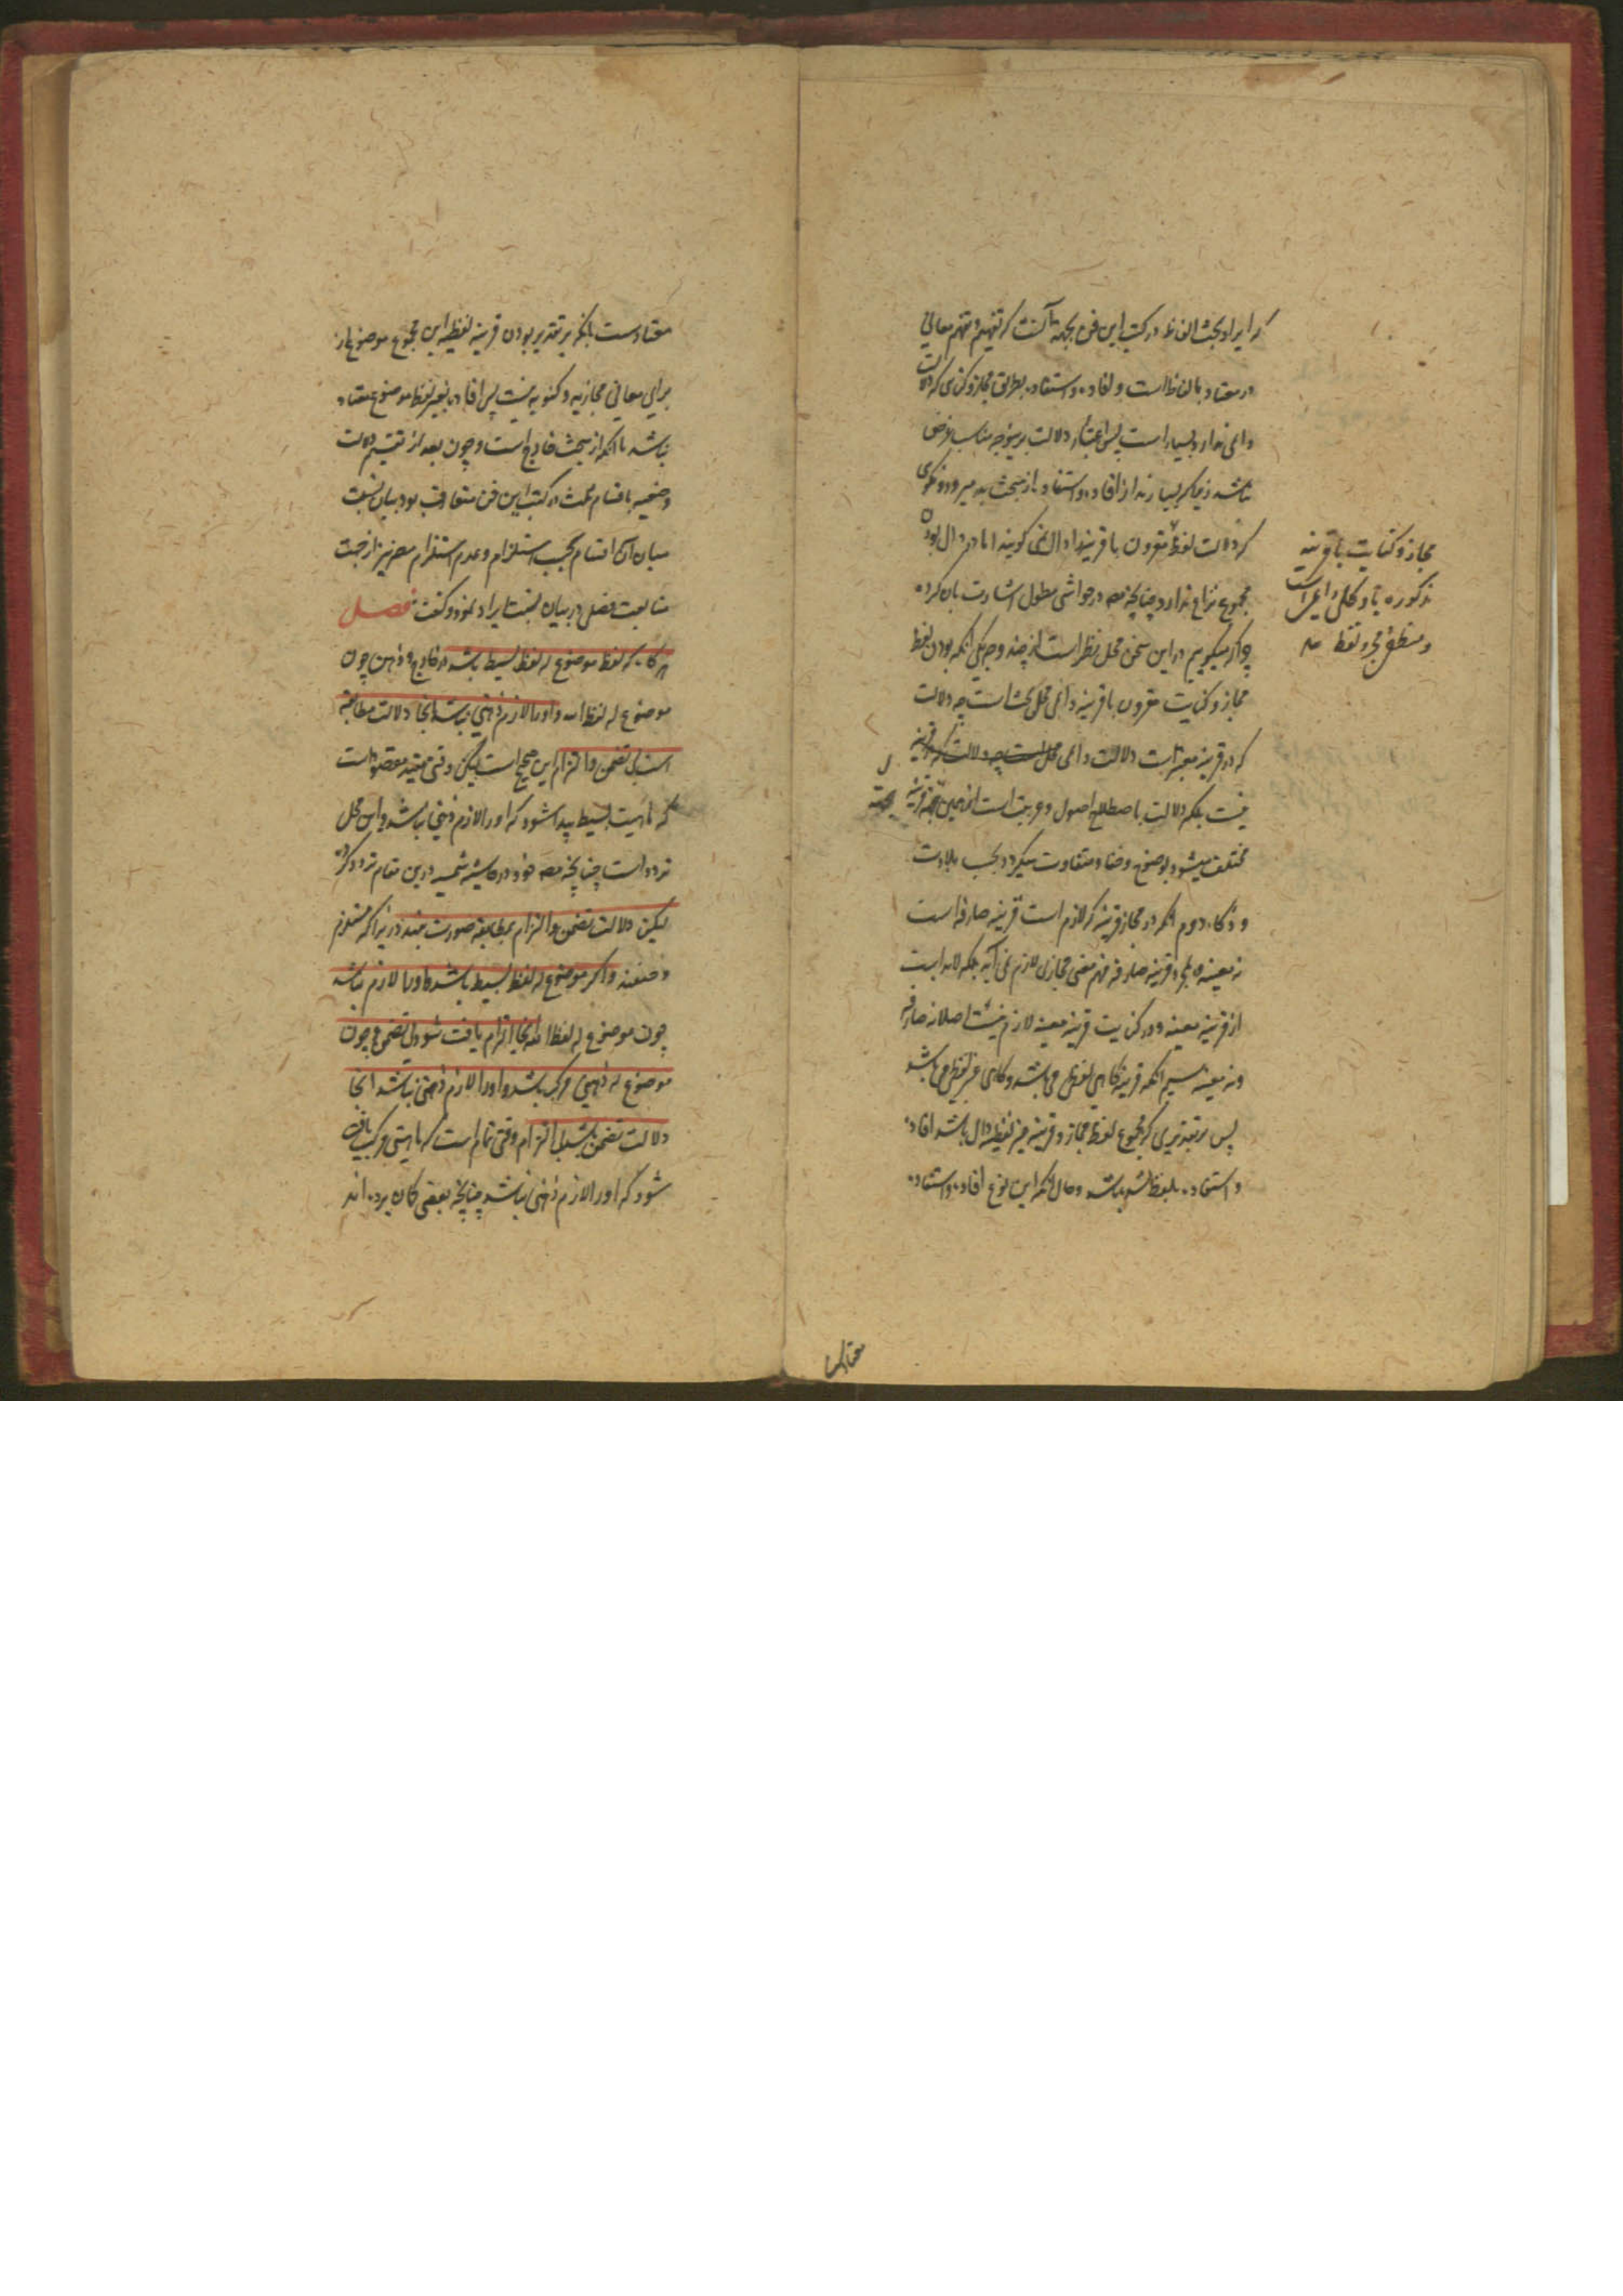 که ایراد بحث الفاظ در کتب این فن بجهة آنست که تفهیم و تفهم معانی
در معتاد بالفاظ است و افاده و استفاده بطریق مجاز و کنایه که دلالت
دایمی ندارد بسیار است پس اعتبار دلالت برین وجه مناسب غرض
نباشد زیرا که بسیار ازافاده و استفاده از مبحث بدر میرود و نگوی
که دلالت لفظ مقرون با قرینه را دال نمی گویند اما در دال بودن
مجموع نزاع ندارد چنانچه مصه در حواشی مطول اشارت بآن کرده
چرا که میگوییم در این سخن محل نظر است از چند وجه یکی آنکه بودن لفظ
مجاز و کنایت مقرون با قرینه دایمی محل بحث است چه دلالت
که در قرینه معتبر است دلالت دایمی
نیست بلکه دلالت باصطلاح اصول و عربیت است ازهمین جهة قرینه
مختلف میشود بوضوح و خفا و متفاوت میگردد بحسب بلادت
و ذکاء دوم آنکه در مجاز قرینه که لازم است قرینه صارفه است
نه معینه و بمجرد قرینه صارفه فهم معنی مجازی لازم نمی آید بلکه لابد است
از قرینه معینه و در کنایت قرینه معینه لازم نیست اصلا نه صارفه
و نه معینه سیم آنکه قرینه گاهی لفظی می باشد و گاهی غیر لفظی می باشد
پس بر تقدیری که مجموع لفظ مجاز و قرینه غیر لفظیه دال باشد افاده
و استفاده بلفظ نباشد و حال آنکه این نوع افاده و استفاده
مجاز و کنایت با قرینه
مذکوره
و منطقی مجرد لفظ
معتاد است بآنکه بر تقدیر بودن قرینه لفظیه این مجموع موضوع از
برای معانی مجازیه و کنویه نیست پس افاده بغیر لفظ موضوع معتاد
باشد با آنکه از مبحث خارج است و چون بعد از تقسیم دلالت
وضعیه باقسام ثلث در کتب این فن متعارف بود بیان نسبت
میان آن اقسام بحسب استلزام و عدم استلزام مصه نیز از جهت
متابعت فصلی در بیان نسبت ایراد نمود و گفت فصل
هر گاه که لفظ موضوع له لفظ بسیط باشد در خارج و ذهن چون
موضوع له لفظ الله و او را لازم ذهنی نباشد آنجا دلالت مطابقة
است بی تضمن و التزام این صحیح است لیکن وقتی مفید مقصود است
که ماهیت بسیط پیدا شود که او را لازم ذهنی نباشد و این محل
تردد است چنانچه مصه خود در حاشیه شمسیه درین مقام تردد کرده
لیکن دلالت تضمن و التزام بی مطابقه صورت نبندد زیرا که مستلزم
وضعند و اگر موضوع له لفظ بسیط باشد و او را لازم باشد
چون موضوع له لفظ الله آنجا التزام یافت شود بی تضمن و چون
موضوع له ذهنی مرکب باشد و او را لازم ذهنی نباشد آنجا
دلالت تضمن باشد بی التزام وقتی تمام است که ماهیتی مرکب یافت
شود که او را لازم ذهنی نباشد چنانچه بعضی گمان برده اند